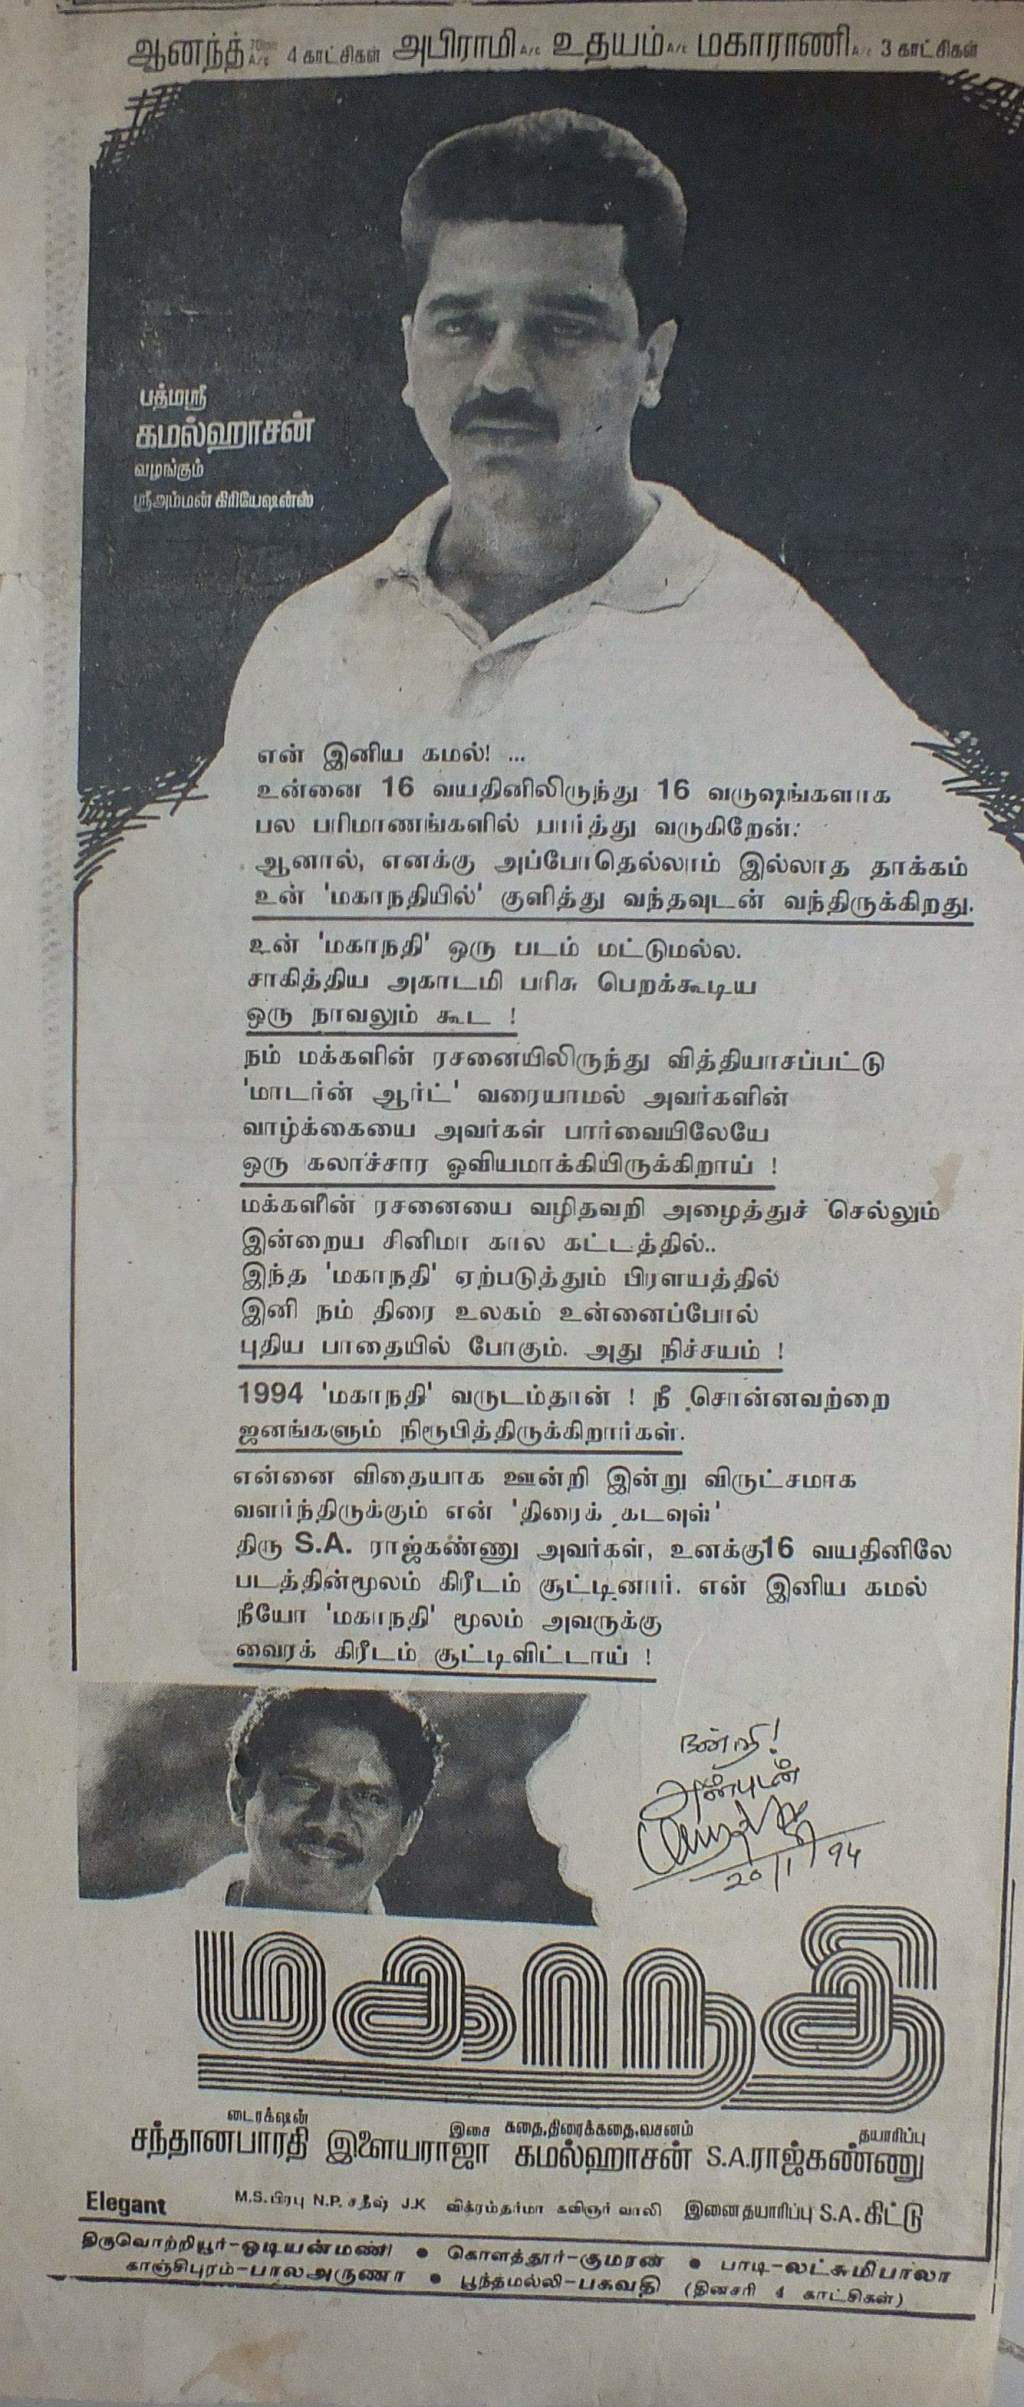 ஆனந்த் 70mm A/c 4 காட்சிகள் அபிராமி A/c உதயம் A/c மகாராணி A/c 3 காட்சிகள்
பத்மஸ்ரீ
கமல்ஹாசன்
வழங்கும்
ஸ்ரீஅம்மன் கிரியேஷன்ஸ்
என் இனிய கமல்! ...
உன்னை 16 வயதினிலிருந்து 16 வருஷங்களாக
பல பரிமாணங்களில் பார்த்து வருகிறேன்.
ஆனால், எனக்கு அப்போதெல்லாம் இல்லாத தாக்கம்
உன் 'மகாநதியில்' குளித்து வந்தவுடன் வந்திருக்கிறது.
உன் 'மகாநதி' ஒரு படம் மட்டுமல்ல.
சாகித்திய அகாடமி பரிசு பெறக்கூடிய
ஒரு நாவலும் கூட !
நம் மக்களின் ரசனையிலிருந்து வித்தியாசப்பட்டு
'மாடர்ன் ஆர்ட்' வரையாமல் அவர்களின்
வாழ்க்கையை அவர்கள் பார்வையிலேயே
ஒரு கலாச்சார ஓவியமாக்கியிருக்கிறாய் !
மக்களின் ரசனையை வழிதவறி அழைத்துச் செல்லும்
இன்றைய சினிமா கால கட்டத்தில்..
இந்த 'மகாநதி' ஏற்படுத்தும் பிரளயத்தில்
இனி நம் திரை உலகம் உன்னைப்போல்
புதிய பாதையில் போகும். அது நிச்சயம் !
1994 'மகாநதி' வருடம்தான் ! நீ சொன்னவற்றை
ஜனங்களும் நிரூபித்திருக்கிறார்கள்.
என்னை விதையாக ஊன்றி இன்று விருட்சமாக
வளர்ந்திருக்கும் என் 'திரைக் கடவுள்'
திரு S.A. ராஜ்கண்ணு அவர்கள், உனக்கு 16 வயதினிலே
படத்தின்மூலம் கிரீடம் சூட்டினார். என் இனிய கமல்
நீயோ 'மகாநதி' மூலம் அவருக்கு
வைரக் கிரீடம் சூட்டிவிட்டாய் !
நன்றி!
அன்புடன்
20/1/94
மகாநதி
டைரக்‌ஷன் இசை கதை,திரைக்கதை,வசனம் தயாரிப்பு
சந்தானபாரதி இளையராஜா கமல்ஹாசன் S.A.ராஜ்கண்ணு
Elegant M.S.பிரபு N.P. சதீஷ் J.K விக்ரம்தர்மா கவிஞர் வாலி இணை தயாரிப்பு S.A.கிட்டு
திருவொற்றியூர்-ஓடியன்மணி • கொளத்தூர்-குமரன் • பாடி-லட்சுமிபாலா
காஞ்சிபுரம்-பாலஅருணா • பூந்தமல்லி-பகவதி (தினசரி 4 காட்சிகள்)